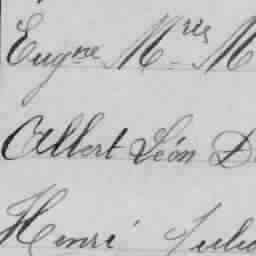 Eugne Mris M
Albert Léon D
Henri Jules